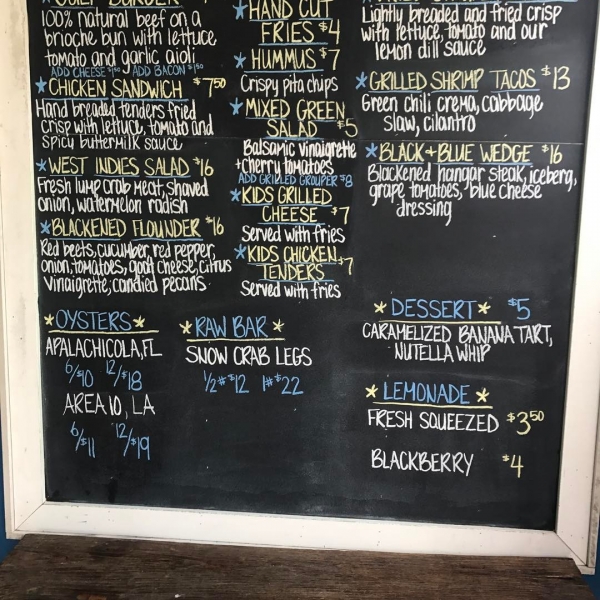 100% natural beef on a
brioche bun with lettuce
tomato and garlic aioli
ADD CHEESE $1.50 ADD BACON $1.50
CHICKEN SANDWICH $7.50
Hand breaded tenders fried
crisp with lettuce, tomato and
spicy buttermilk sauce
WEST INDIES SALAD $16
Fresh lump crab meat, shaved
onion, watermelon radish
BLACKENED FLOUNDER $16
Red beets, cucumber, red pepper,
onion, tomatoes, goat cheese, citrus
vinaigrette, candied pecans
HAND CUT
FRIES $4
HUMMUS $7
Crispy pita chips
MIXED GREEN
SALAD $5
Balsamic vinaigrette
+ cherry tomatoes
ADD GRILLED GROUPER $8
KIDS GRILLED
CHEESE $7
Served with fries
KIDS CHICKEN
TENDERS $7
Served with fries
Lightly breaded and fried crisp
with lettuce, tomato and our
lemon dill sauce
GRILLED SHRIMP TACOS $13
Green chili crema, cabbage
slaw, cilantro
BLACK + BLUE WEDGE $16
Blackened hangar steak, iceberg,
grape tomatoes, blue cheese
dressing
OYSTERS
APALACHICOLA, FL
6/$10 12/$18
AREA 10, LA
6/$11 12/$19
RAW BAR
SNOW CRAB LEGS
1/2# $12 1# $22
DESSERT $5
CARAMELIZED BANANA TART,
NUTELLA WHIP
LEMONADE
FRESH SQUEEZED $3.50
BLACKBERRY $4